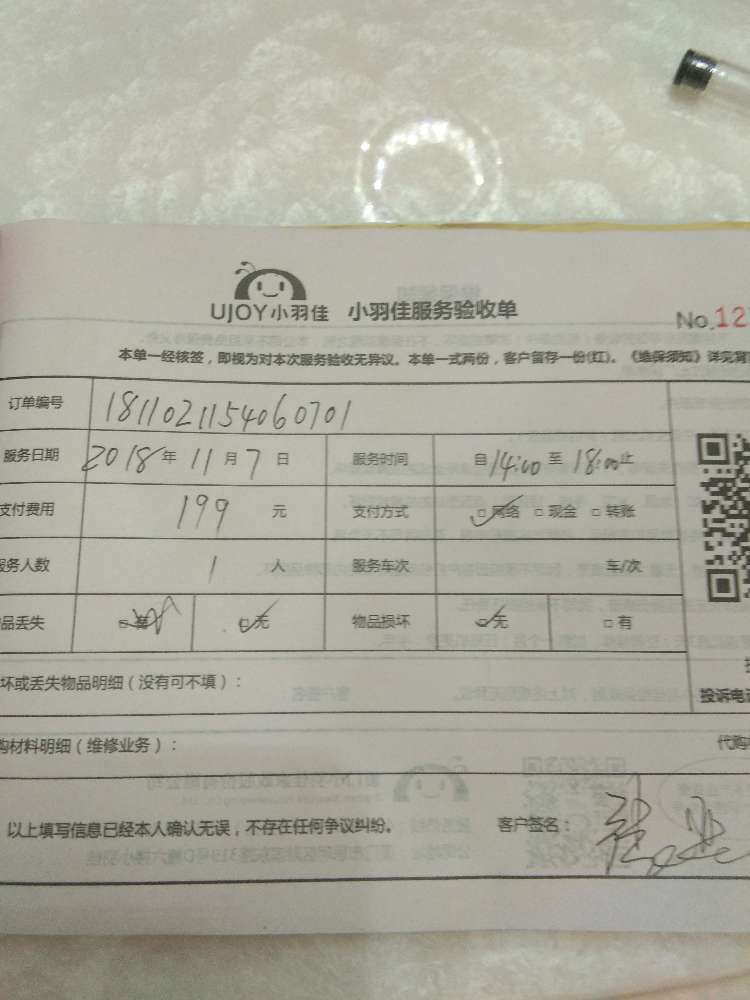 UJOY小羽佳 小羽佳服务验收单
No.12
本单一经核签，即视为对本次服务验收无异议。本单一式两份，客户留存一份(红)。《绝保须知》详见背
订单编号 1811021154060701
服务日期 2018年11月7日 服务时间 自14:00至18:00止
支付费用 199元 支付方式 □网络 □现金 □转账
服务人数 1人 服务车次 车/次
品丢失 □无 物品损坏 □无 □有
坏或丢失物品明细（没有可不填）：
投诉电
购材料明细（维修业务）： 代购
以上填写信息已经本人确认无误，不存在任何争议纠纷。 客户签名：